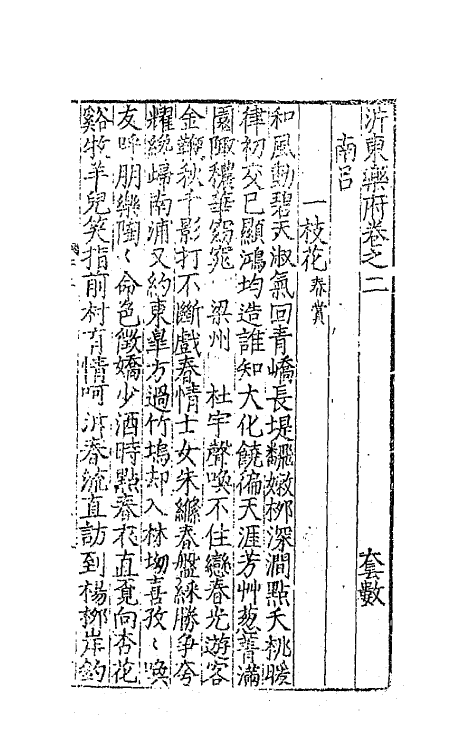 沜東樂府卷之二 套數
南呂
一枝花 春賞
和風動碧天淑氣回青嶠長堤飜嫩柳深澗點夭桃暖
律初交已顯鴻均造誰知大化饒徧天涯芳艸葱菁滿
園陬穠華窈窕 梁州 杜宇聲喚不住戀春光遊客
金鞭秋千影打不斷戲春情士女朱縧春盤綵勝爭夸
耀纔歸南浦又約東皐方過竹塢却入林坳喜孜〻喚
友呼朋樂陶〻命色徵嬌少酒時點春衣直覔向杏花
谿牧羊兒笑指前村有情呵泝春流直訪到楊柳岸釣